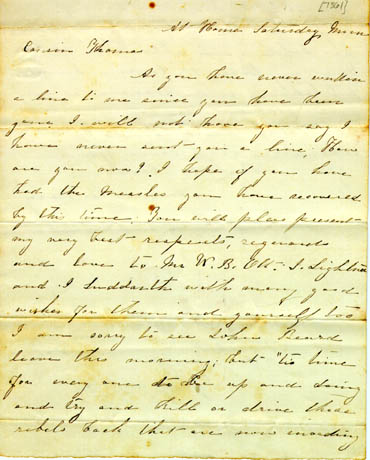 [1861]
At Home Saturday Morn
Cousin Thomas
As you have never written
a line to me since you have been
gone I will not have you say I
have never sent you a line; How
are you now? I hope if you have
had the Measles you have recovered
by this time. You will please present
my very best respects, regards
and love to Mr W. B. Ott. I.
and J Suddarth with many good
wishes for them and yourself too
I am sorry to see John Beard
leave this morning; but "tis time
for every one to be up and doing
and try and kill or drive these
rebels back that are now invading